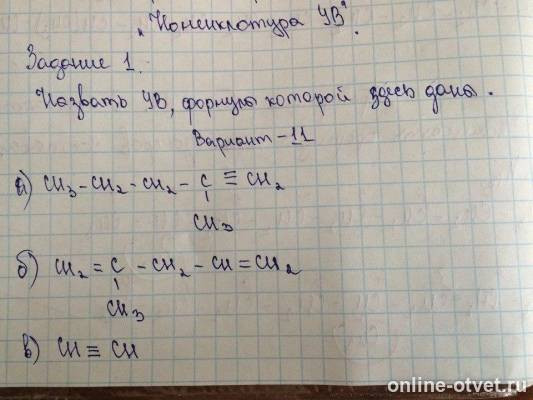 „Номенклатура УВ".
Задание 1.
Назвать УВ, формулы которой здесь даны.
Вариант – 11
а) CH3 - CH2 - CH2 - C ≡ CH2
CH3
б) CH2 = C - CH2 - CH = CH2
CH3
в) CH ≡ CH
online-otvet.ru